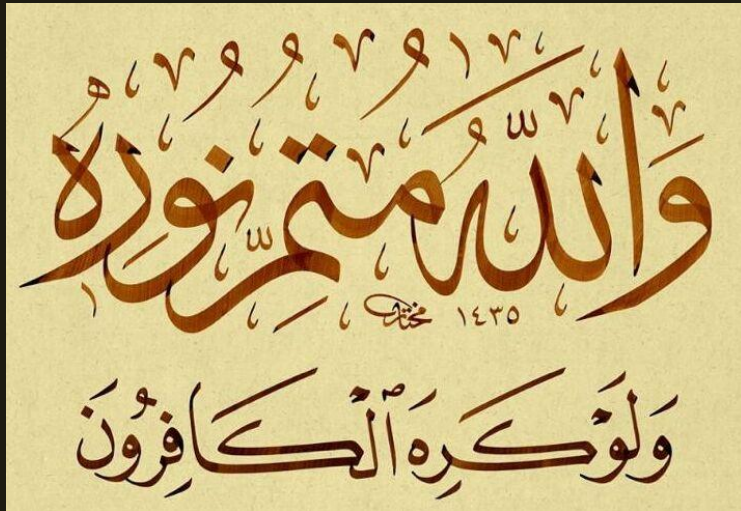 وَاللَّهُ مُتِمُّ نُورِهِ
مختار ١٤٣٥
وَلَوْ كَرِهَ ٱلْكَافِرُونَ